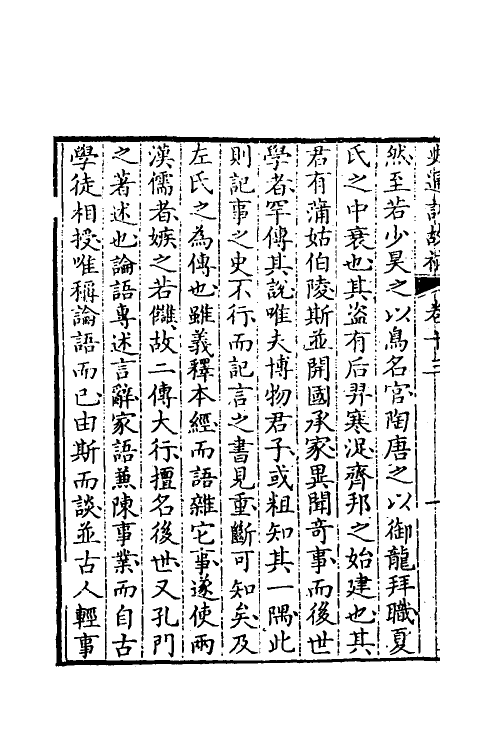 史通訓故補 卷十三 一
然至若少昊之以鳥名官陶唐之以御龍拜職夏
氏之中衰也其盜有后羿寒浞齊邦之始建也其
君有蒲姑伯陵斯並開國承家異聞奇事而後世
學者罕傳其說唯夫博物君子或粗知其一隅此
則記事之史不行而記言之書見重斷可知矣及
左氏之為傳也雖義釋本經而語雜它事遂使兩
漢儒者嫉之若讎故二傳大行擅名後世又孔門
之著述也論語專述言辭家語兼陳事業而自古
學徒相授唯稱論語而已由斯而談並古人輕事